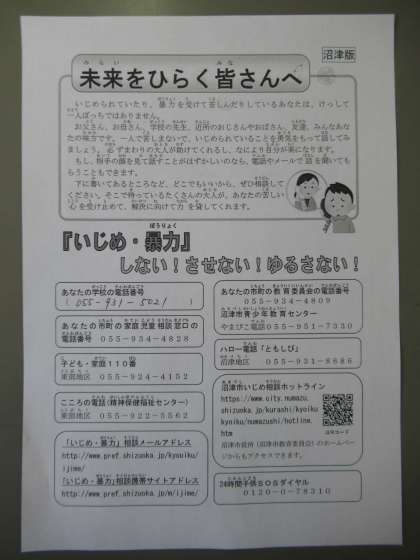 沼津版
未来をひらく皆さんへ
いじめられていたり、暴力を受けて苦しんだりしているあなたは、けっして
一人ぼっちではありません。
お父さん、お母さん、学校の先生、近所のおじさんやおばさん、友達、みんなあな
たの味方です。一人で苦しまないで、いじめられていることを勇気をもって話してみ
ましょう。必ずまわりの大人が助けてくれるし、なにより自分が楽になります。
もし、相手の顔を見て話すことがはずかしいのなら、電話やメールで話を聞いても
らうこともできます。
下に書いてあるところなど、どこでもいいから、ぜひ相談して
ください。そこで待っているたくさんの大人が、あなたの苦しい
心を受け止めて、解決に向けて力を貸してくれます。
『いじめ・暴力』
しない!させない!ゆるさない!
あなたの学校の電話番号
(055-931-5021)
あなたの市町の家庭児童相談窓口の
電話番号 055-934-4828
子ども・家庭110番
東部地区 055-924-4152
こころの電話(精神保健福祉センター)
東部地区 055-922-5562
「いじめ・暴力」相談メールアドレス
http://www.pref.shizuoka.jp/kyouiku/
ijime/
「いじめ・暴力」相談携帯サイトアドレス
http://www.pref.shizuoka.jp/m/ijime/
あなたの市町の教育委員会の電話番号
055-934-4809
沼津市青少年教育センター
やまびこ電話055-951-7330
ハロー電話「ともしび」
沼津地区 055-931-8686
沼津市いじめ相談ホットライン
https://www.city.numazu.
shizuoka.jp/kurashi/kyoiku
kyoiku/numazushi/hotline.
htm
QRコード
沼津市役所(沼津市教育委員会)のホームペー
ジからもアクセスできます。
24時間子供SOSダイヤル
0120-0-78310